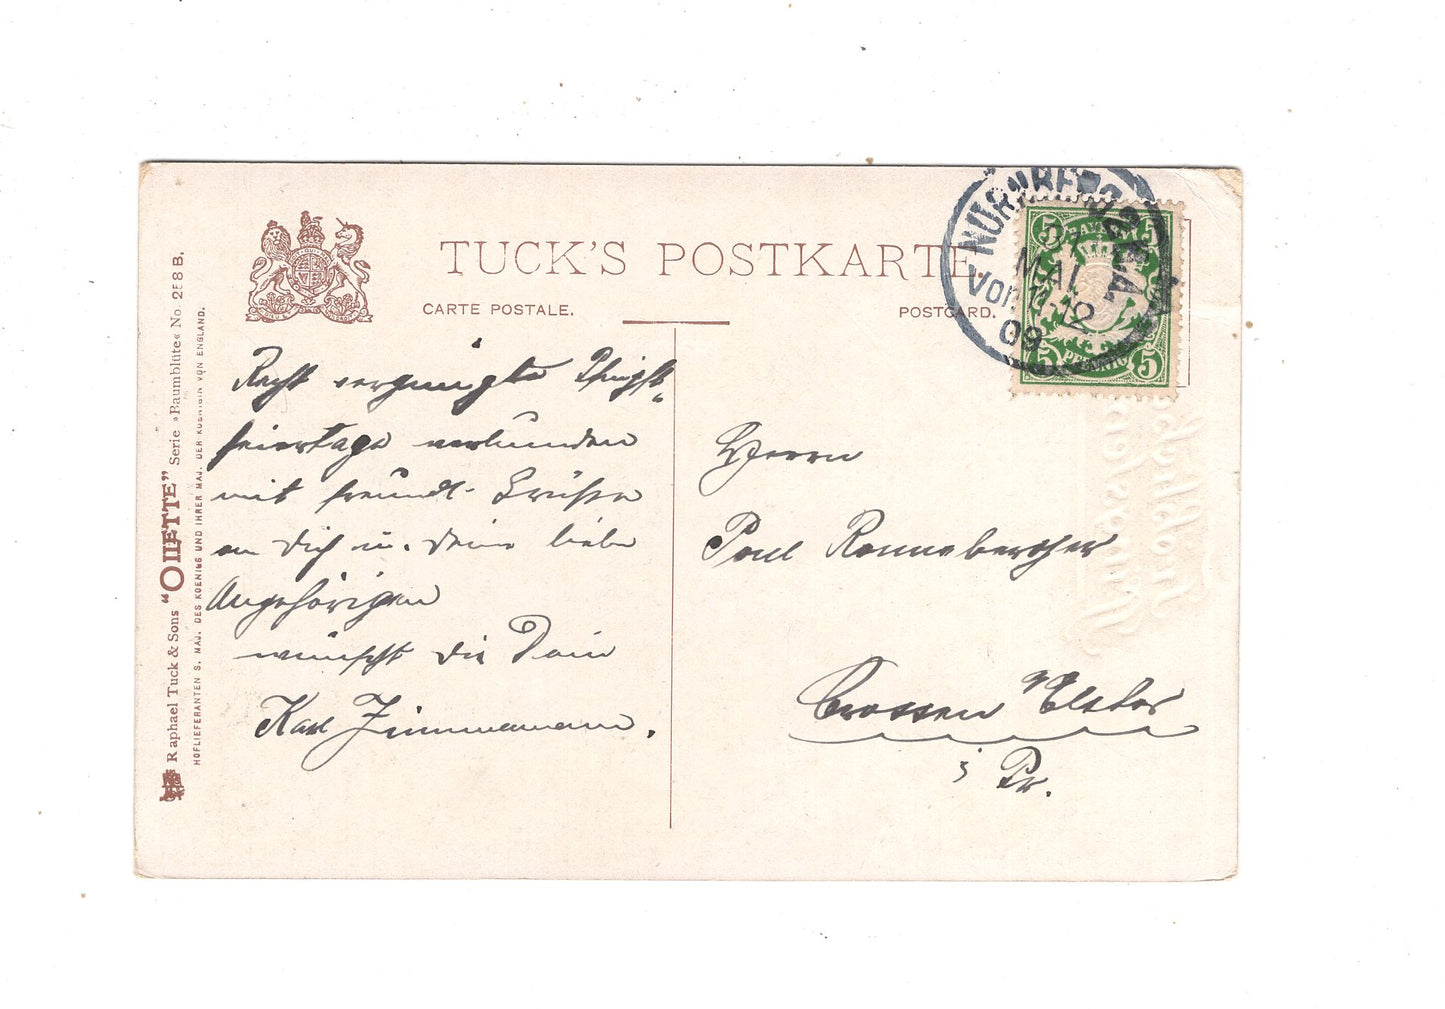 TUCK'S POSTKARTE.
CARTE POSTALE.
POSTCARD.
NÜRNBERG 2 Z.A.
MAI
Vor.
09
BAYERN
5 5
5 5
PORTO
Raphael Tuck & Sons "OILETTE" Serie »Baumblüte« No. 258 B.
HOFLIEFERANTEN S. MAJ. DES KOENIGS UND IHRER MAJ. DER KOENIGIN VON ENGLAND.
Recht vergnügte Pfingst-
feiertage verbunden
mit freundl. Grüßen
an Dich u. Deine lieben
Angehörigen
wünscht dir Dein
Karl Zimmermann.
Herrn
Paul Ronneberger
Crossen Elster
Pr.
Fröhliche
Pfingsten